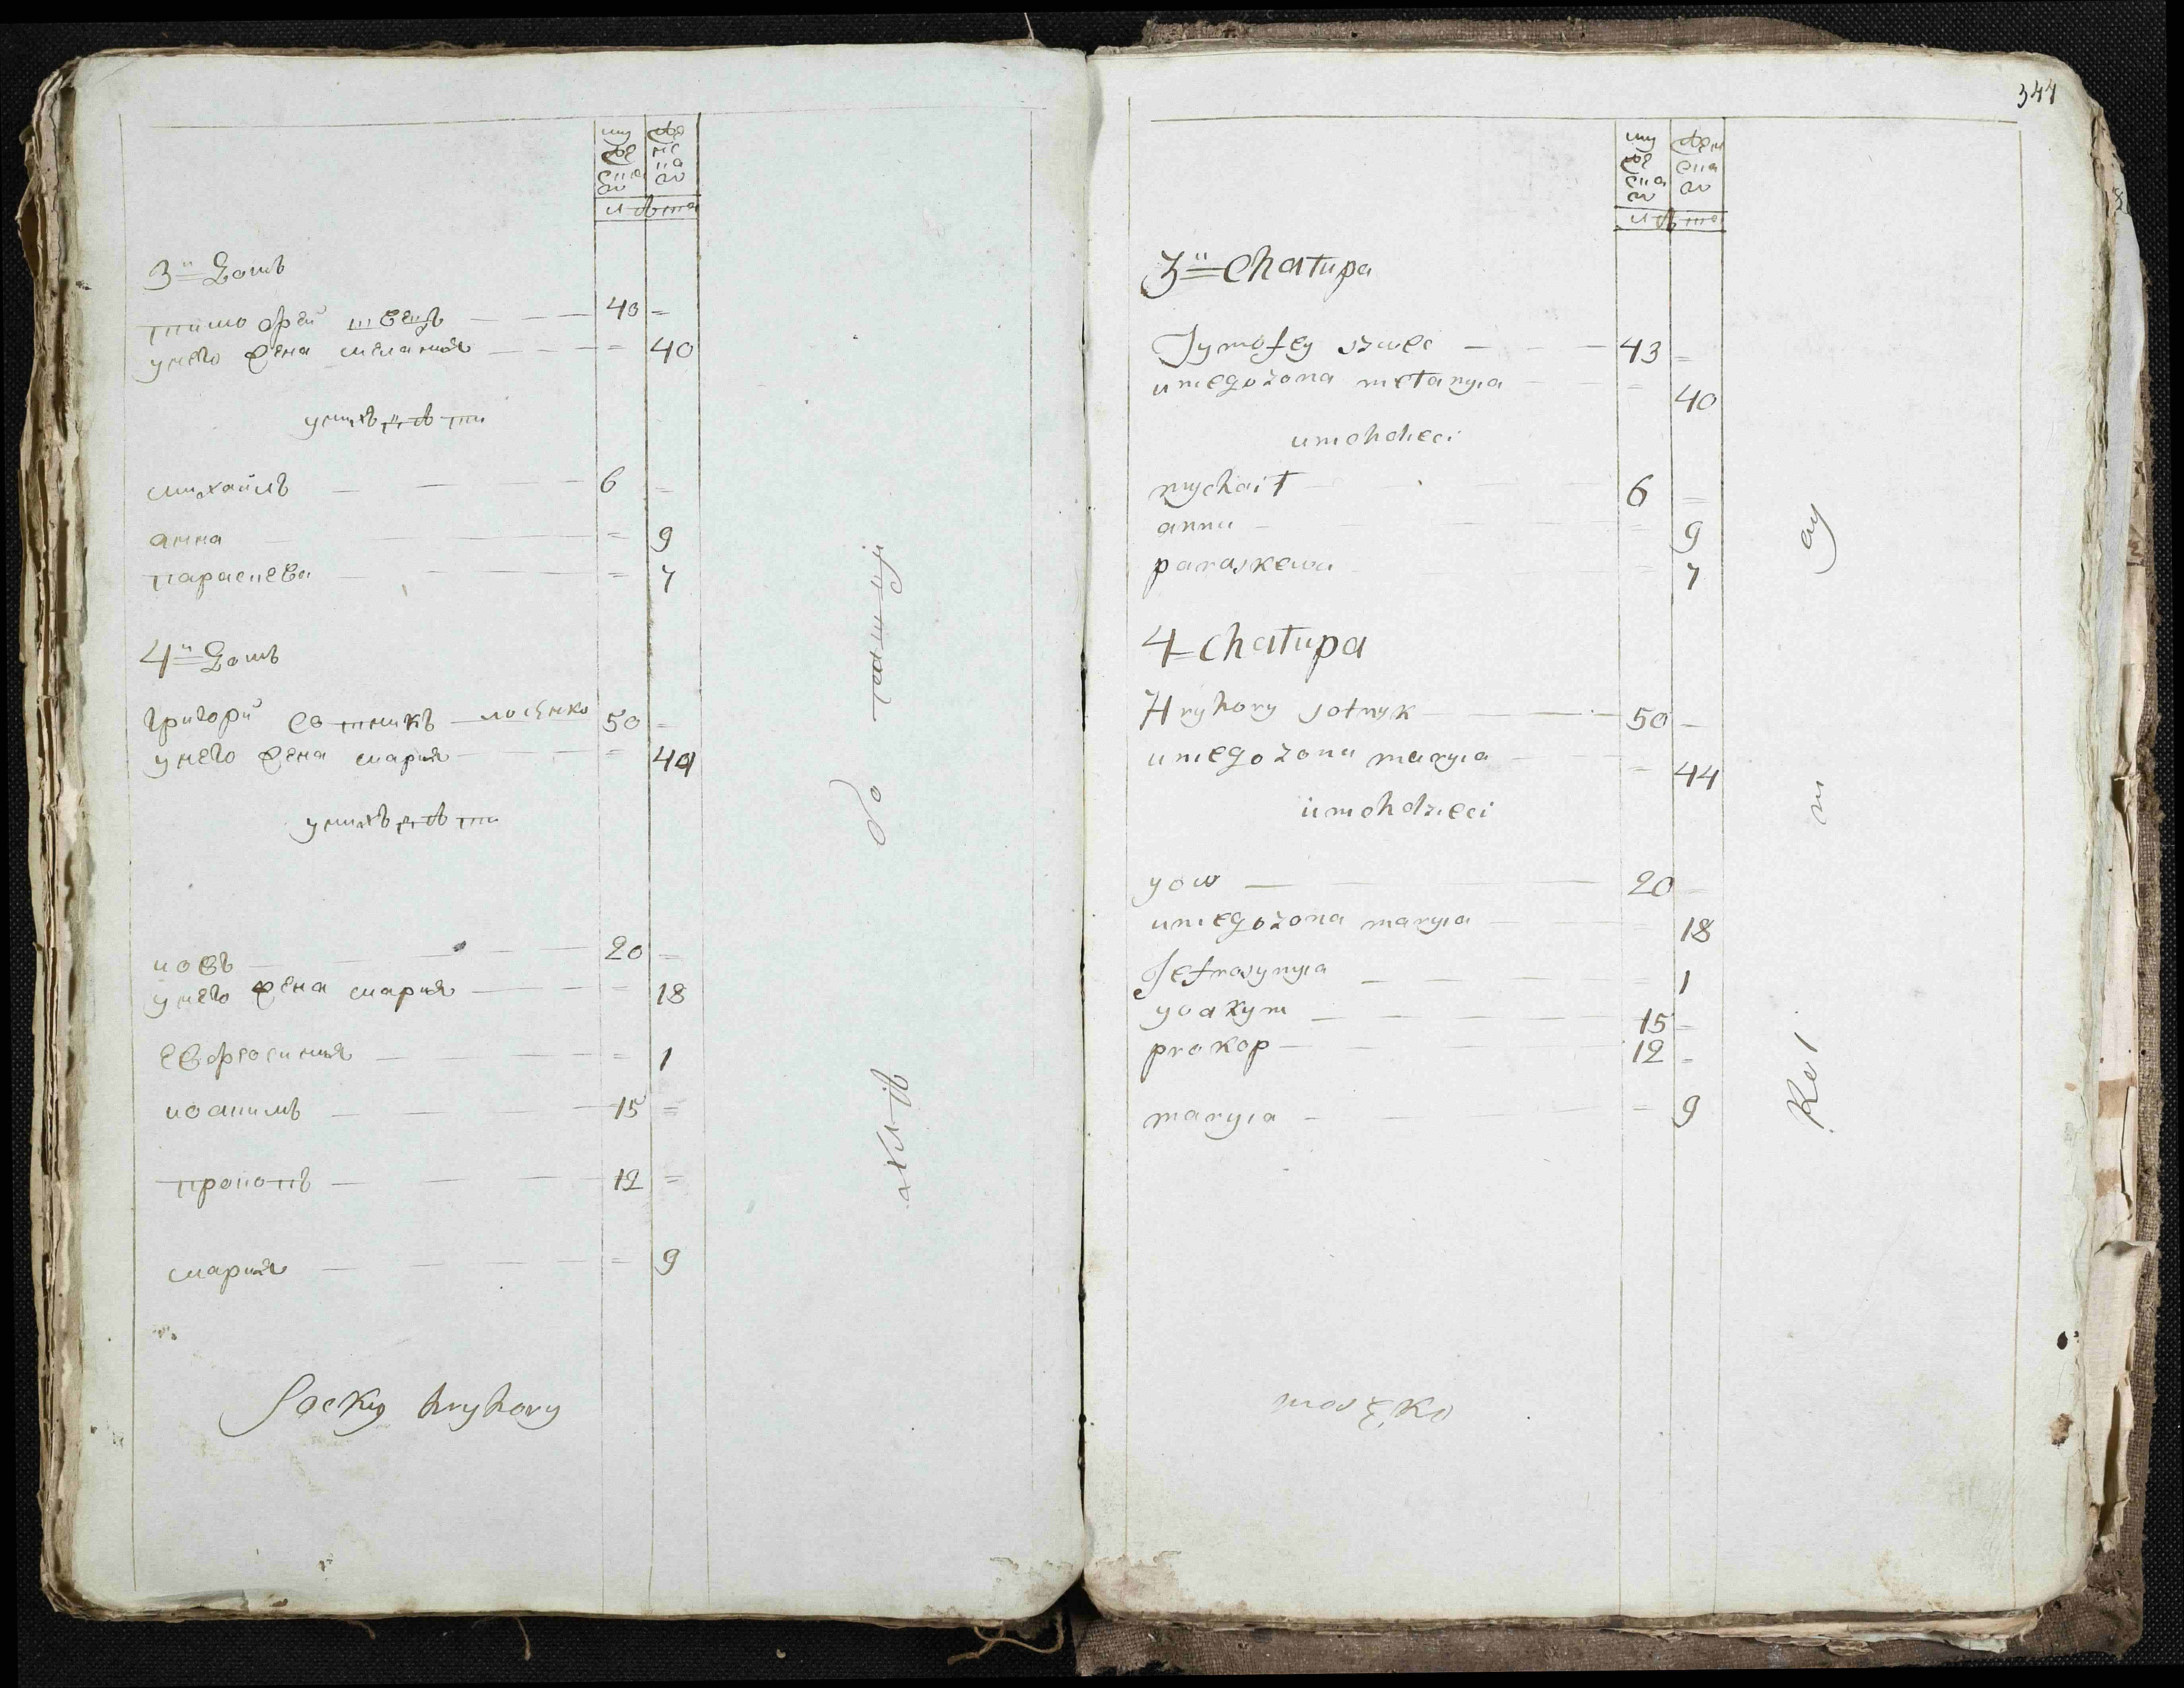 му
же
ска
го
же
нс
ка
го
лѣта
3й Домъ
тимофей швецъ 43 =
унего жена мелания = 40
унихъ дѣти
михаилъ 6 =
анна = 9
параскева = 7
4й Домъ
григорй сотникъ лосенко 50 =
унего жена мария = 44
унихъ дѣти
иовъ 20 =
унего жена мария = 18
евфросиния = 1
иоакимъ 15 =
прокопъ 12 =
мария = 9
Socky hryhory
344
му
же
ска
го
жен
ска
го
лѣта
3ii Chałupa
Tymofey szwec 43 =
uniego zona mełanyia = 40
unichdieci
mychaił 6 =
anna = 9
paraskewa = 7
4 chałupa
Hryhory sotnyk 50 =
uniego zona maryia = 44
unichdzieci
yow 20 =
uniego zona maryia = 18
Jefrosynyia = 1
yoakym 15 =
prokop 12 =
maryia = 9